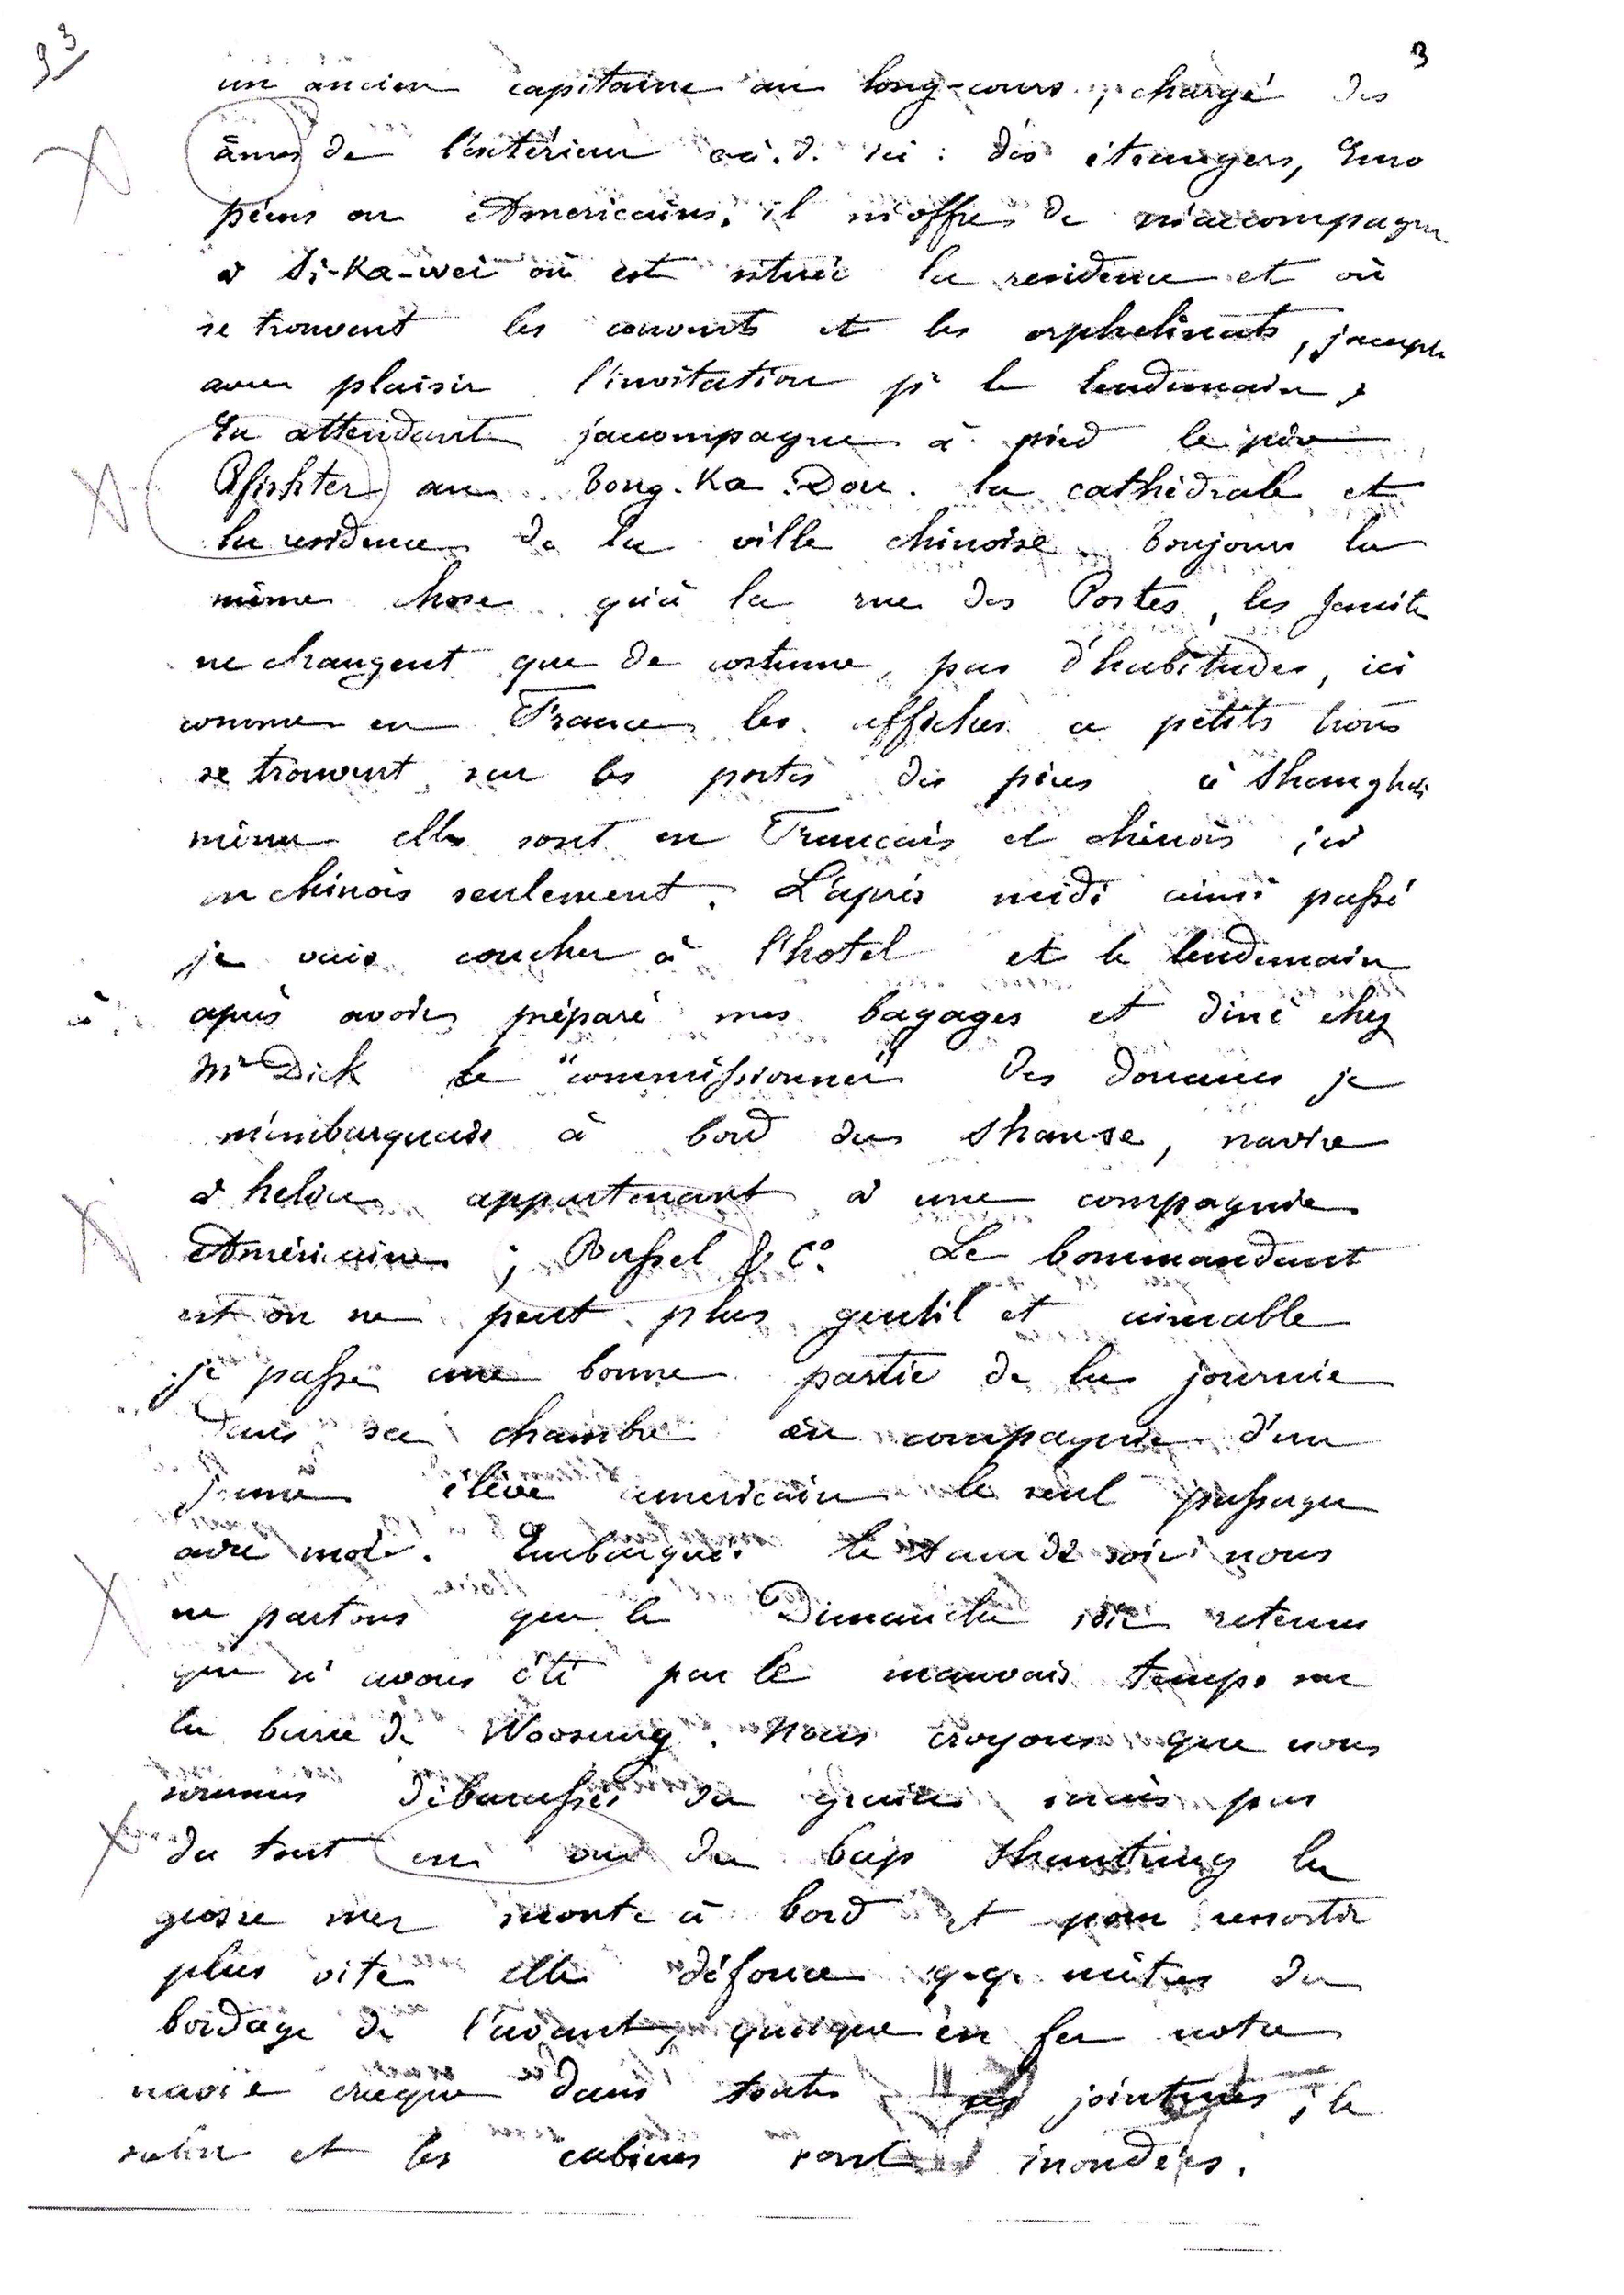 93
3
un ancien capitaine au long-cours, chargé des
âmes de l'extérieur c.à.d. ici : des étrangers, Euro
péens ou Americains, il m'offre de m'accompagner
à Si-Ka-wei où est située la residence et où
se trouvent les couvents et les orphelinats, j'accepte
avec plaisir l'invitation pr le lendemain,
En attendant j'accompagne à pied le père
Pfishter au Tong-Ka-Dou. la cathédrale et
la residence de la ville chinoise. Toujours la
même chose qu'à la rue des Postes, les Jesuites
ne changent que de costume, pas d'habitudes, ici
comme en France les affiches a petits trous
se trouvent sur les portes des pères à Shanghai
même elles sont en Francais et chinois ici
en chinois seulement. L'après midi ainsi passé
je vais coucher à l'hotel et le lendemain
à
après avoir préparé mes bagages et diné chez
Mr Dick le "commissionner" des douanes je
m'embarquais à bord du Shanse, navire
à helice appartenant à une compagnie
Américaine ; Russel & Co. Le Commandant
est on ne peut plus gentil et aimable
je passe une bonne partie de la journée
dans sa chambre en compagnie d'un
jeune élève americain le seul passager
avec moi. Embarqués le samedi soir nous
ne partons que le Dimanche soir retenus
que n' avons été par le mauvais temps sur
la barre de Woosung. Nous croyons que nous
sommes débarassés du grain mais pas
du tout du Cap Shantung la
grosse mer monte à bord et pour ressortir
plus vite elle défonce q.q. mètres du
bordage de l'avant, quoique en fer notre
navire craque dans toutes ses jointures ; le
salon et les cabines sont inondées.